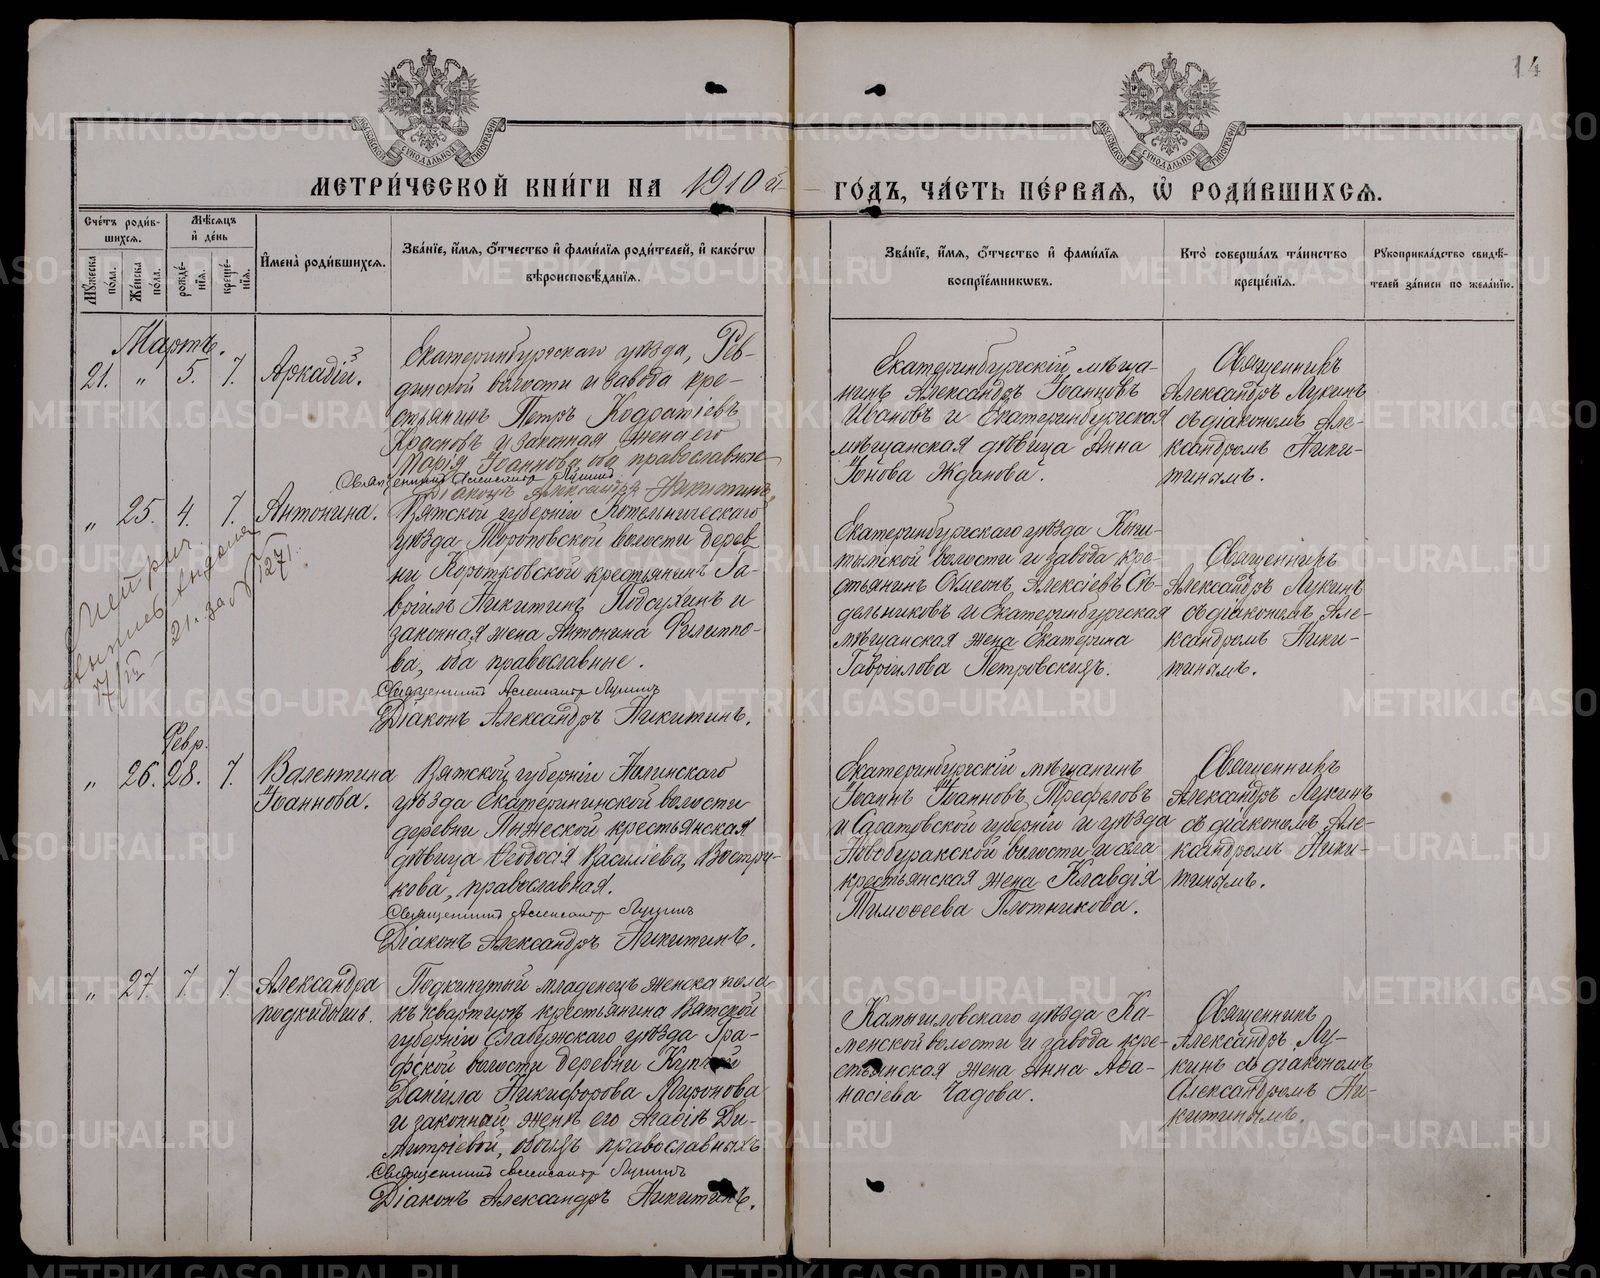 14
МОСКОВСКОЙ СѴНОДАЛЬНОЙ ТИПОГРАФІИ
МОСКОВСКОЙ СѴНОДАЛЬНОЙ ТИПОГРАФІИ
МЕТРИ́ЧЕСКОЙ КНИ́ГИ НА 1910 й ГО́ДЪ, ЧА́СТЬ ПЕ́РВАЯ, Ѽ РОДИ́ВШИХСЯ.
Сче́тъ роди́в-
шихся.
Мѣ́сяцъ
и҆ де́нь
Мꙋ́жеска
по́ла.
Же́нска
по́ла.
рожде́-
нїѧ.
креще́-
нїѧ.
И҆мена̀ роди́вшихся.
Зва́нїе, и҆́мѧ, ѻ҆́тчество и҆ фами́лїѧ роди́телей, и҆ како́гѡ
вѣроисповѣ́данїѧ.
Зва́нїе, и҆́мѧ, ѻ҆́тчество и҆ фами́лїѧ
воспрїе́мникѡвъ.
Кто̀ соверша́лъ та́инство
креще́нїѧ.
Рꙋкоприкла́дство свидѣ́-
телей за́писи по жела́нїю.
Мартъ.
21. " 5. 7. Аркадій.
Екатеринбургскаго уѣзда, Рев-
динской волости и завода кре-
стьянинъ Петръ Кодратіевъ
Красновъ и законная жена его
Марія Іоаннова, оба православные
Священникъ Александръ Лукинъ
Діаконъ Александръ Никитинъ.
Екатеринбургскій мѣща-
нинъ Александръ Іоанновъ
Ивановъ и Екатеринбургская
мѣщанская дѣвица Анна
Іонова Жданова.
Священникъ
Александръ Лукинъ
съ діакономъ Але-
ксандромъ Ники-
тинымъ.
" 25. 4. 7. Антонина.
Метрич.
выпись выдана
17/IV 21. за № 127.
Вятской губерніи Котельническаго
уѣзда Тороповской волости дерев-
ни Коротковской крестьянинъ Га-
вріилъ Никитинъ Подсухинъ и
законная жена Антонина Филиппо-
ва, оба православные.
Священникъ Александръ Лукинъ
Діаконъ Александръ Никитинъ.
Екатеринбургскаго уѣзда Кыш-
тымской волости и завода кре-
стьянинъ Симеонъ Алексіевъ Сѣ-
дельниковъ и Екатеринбургская
мѣщанская жена Екатерина
Гавріилова Петровскихъ.
Священникъ
Александръ Лукинъ
съ діакономъ Але-
ксандромъ Ники-
тинымъ.
Февр.
" 26. 28. 7. Валентина
Іоаннова.
Вятской губерніи Нолинскаго
уѣзда Екатерининской волости
деревни Пыжеской крестьянская
дѣвица Ѳеодосія Василіева, Востри-
кова, православная.
Священникъ Александръ Лукинъ
Діаконъ Александръ Никитинъ.
Екатеринбургскій мѣщанинъ
Іоаннъ Іоанновъ Трефеловъ
и Саратовской губерніи и уѣзда
Новобуракской волости и села
крестьянская жена Клавдія
Тимоѳеева Плотникова.
Священникъ
Александръ Лукинъ
съ діакономъ Але-
ксандромъ Ники-
тинымъ.
" 27 7 7. Александра
подкидышъ.
Подкинутый младенецъ женска пола
къ квартирѣ крестьянина Вятской
губерніи Елабужскаго уѣзда Гра-
фской волости деревни
Даніила Никифорова Миронова
и законной женѣ его Маріи Ди-
митріевой, обоихъ православныхъ
Священникъ Александръ Лукинъ
Діаконъ Александръ Никитинъ.
Камышловскаго уѣзда Ка-
менской волости и завода кре-
стьянская жена Анна Аѳа-
насіева Чадова.
Священникъ
Александръ Лу-
кинъ съ діакономъ
Александромъ Ни-
китинымъ.
METRIKI.GASO-URAL.RU